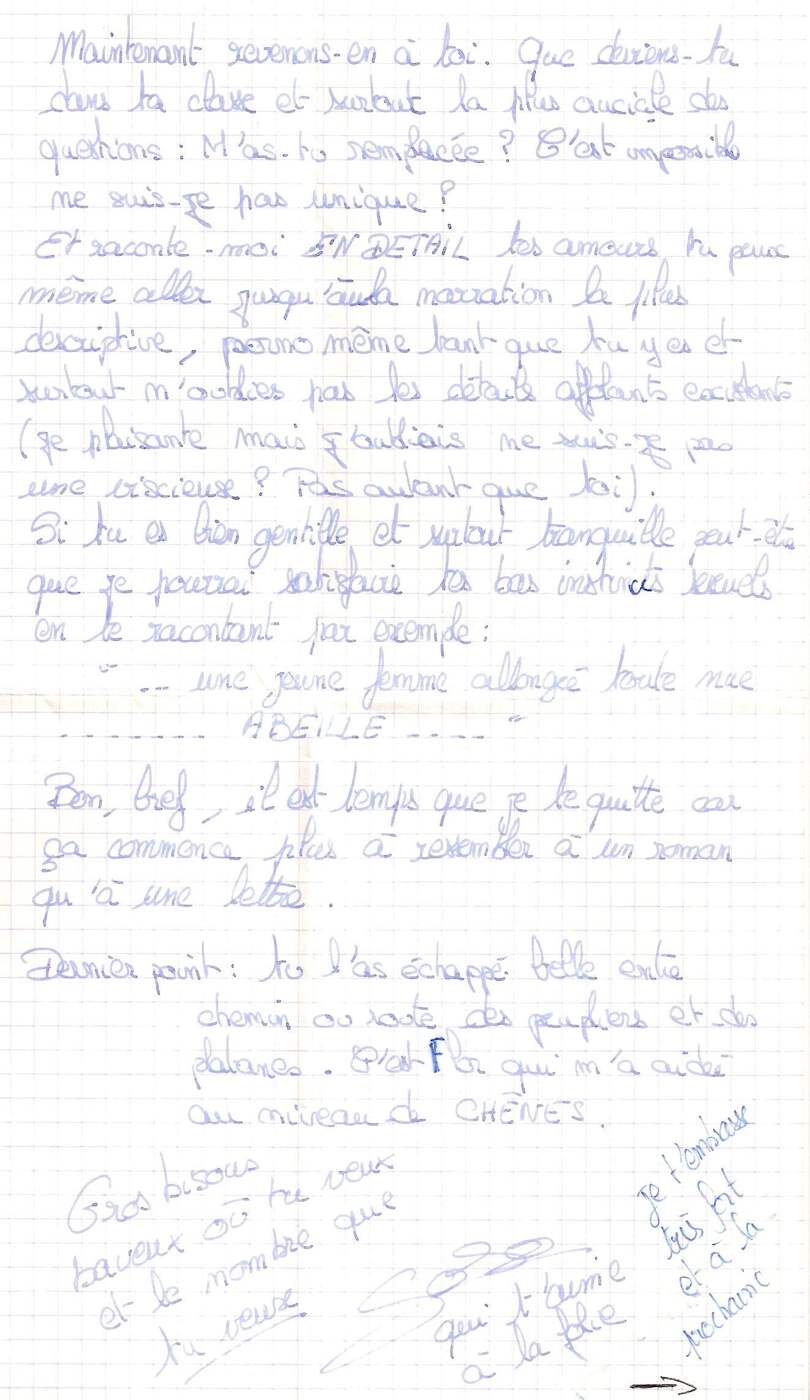 Maintenant revenons-en à toi. Que deviens-tu
dans ta classe et surtout la plus cruciale des
questions : M'as-tu remplacée ? C'est impossible
ne suis-je pas unique ?
Et raconte-moi EN DETAIL tes amours tu peux
même aller jusqu'à la narration la plus
descriptive, porno même tant que tu y es et
surtout n'oublies pas les détails affolants excitants
(je plaisante mais j'oubliais ne suis-je pas
une viscieuse ? Pas autant que toi).
Si tu es bien gentille et surtout tranquille peut-être
que je pourrai satisfaire tes bas instincts sexuels
en te racontant par exemple :
" ... une jeune femme allongée toute nue
....... ABEILLE .... "
Bon, bref, il est temps que je te quitte car
ça commence plus à ressembler à un roman
qu'à une lettre.
Dernier point : tu l'as échappé belle entre
chemin ou route des peupliers et des
platanes. C'est Flor qui m'a aidée
au niveau de CHÊNES.
Gros bisous
baveux où tu veux
et le nombre que
tu veux
qui t'aime
à la folie
je t'embrasse
très fort
et à la
prochaine